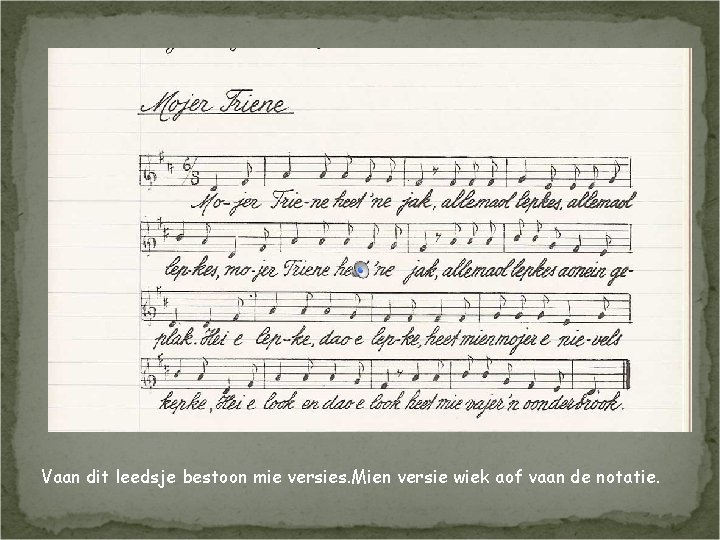 Mojer Triene
6/8
Mo-jer Trie-ne heet 'ne jak, allemaol lepkes, allemaol
lep-kes, mo-jer Triene heet 'ne jak, allemaol lepkes aonein ge-
plak. Hei e lep-ke, dao e lep-ke, heet mien mojer e nie-vels
kepke, Hei e look en dao e look heet mie vajer 'n oonderbrook.
Vaan dit leedsje bestoon mie versies.Mien versie wiek aof vaan de notatie.